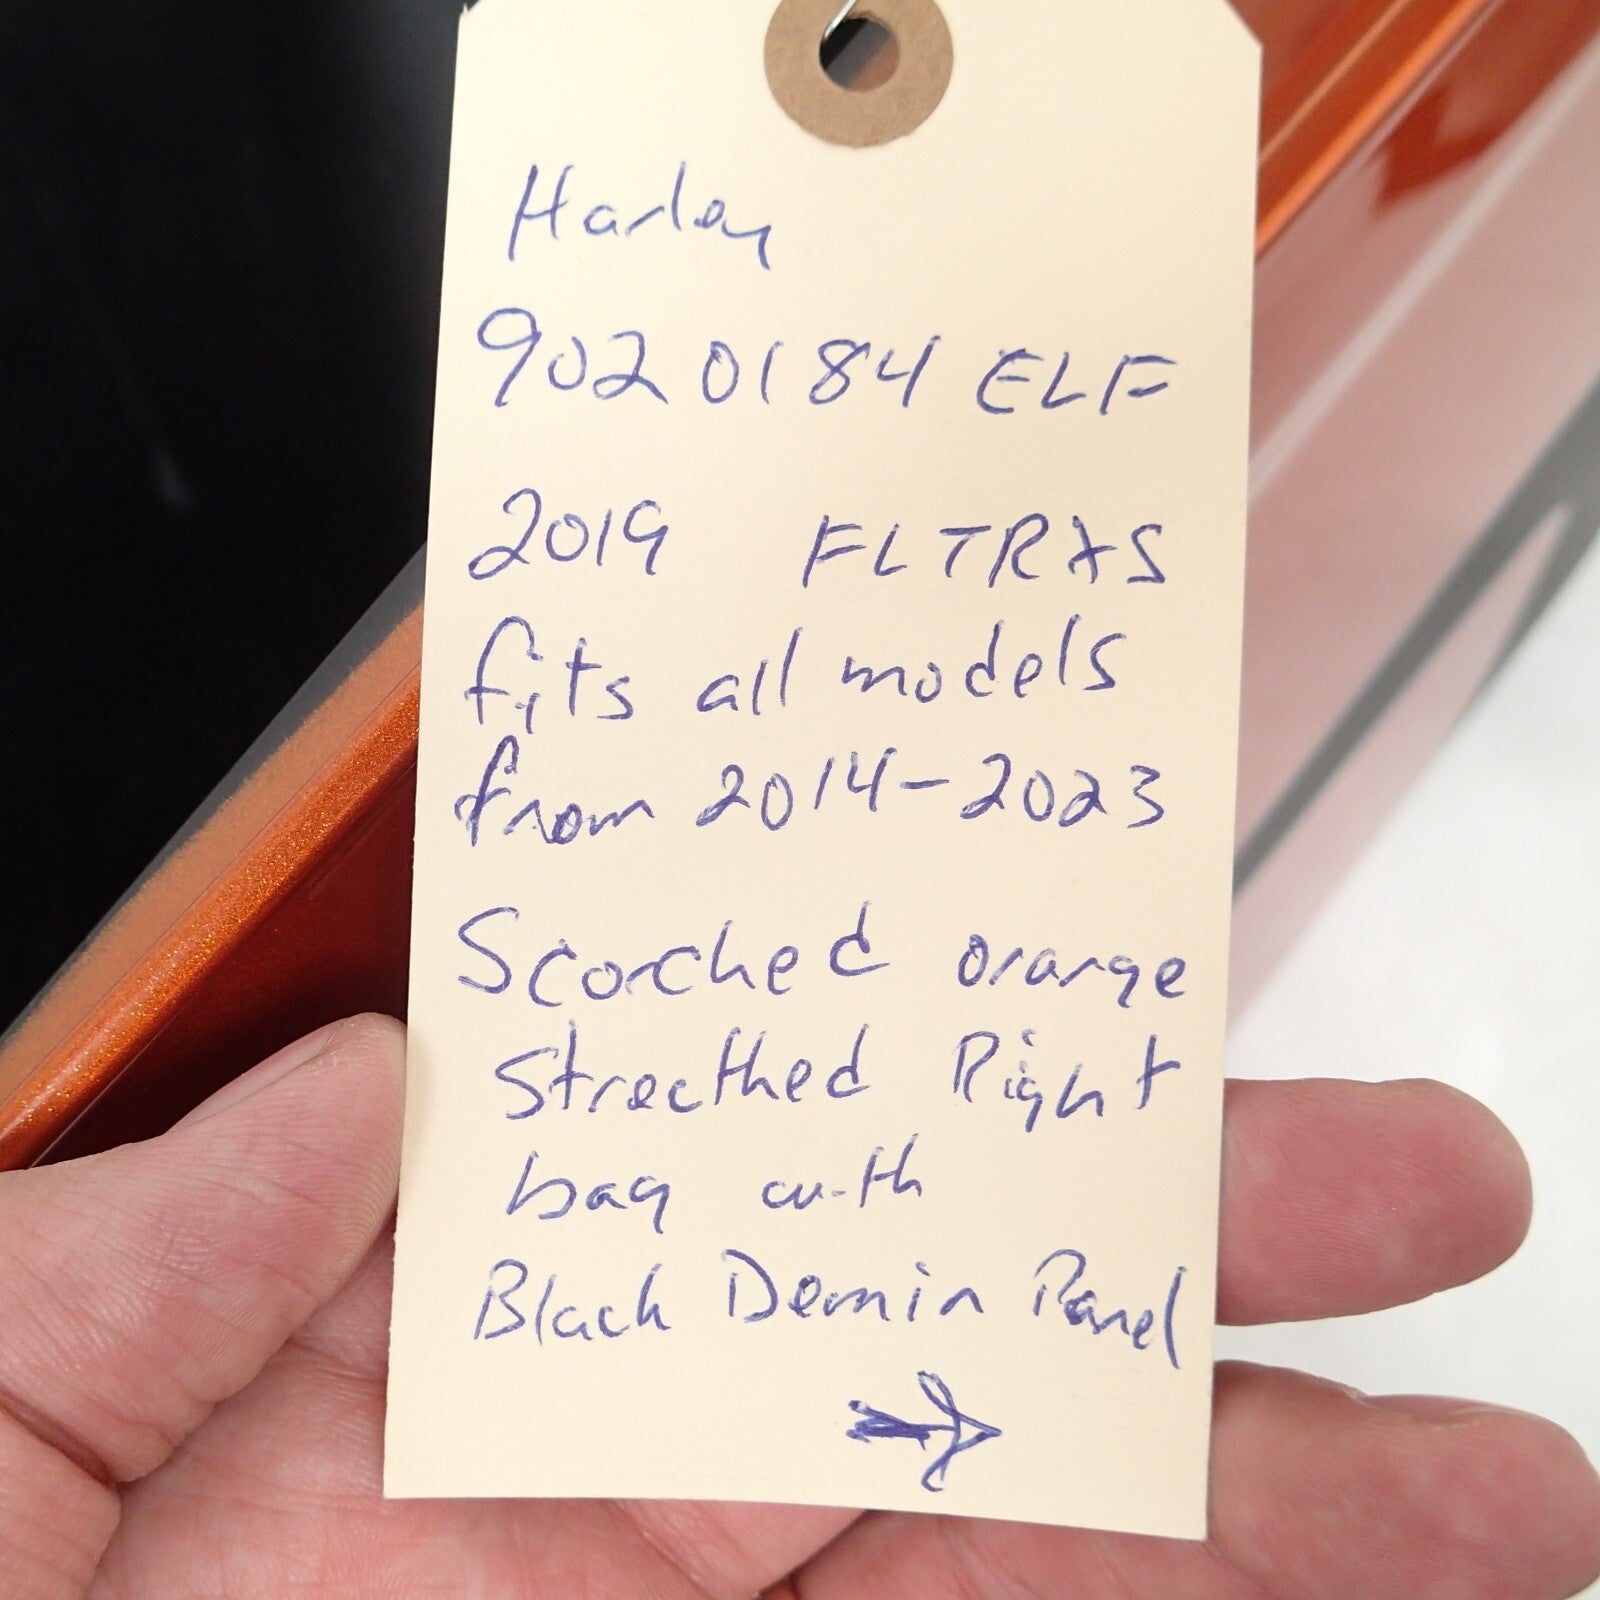 Harley
9020184 ELF
2019 FLTRXS
fits all models
from 2014-2023
Scorched orange
Strecthed Right
bag with
Black Demin Panel
→